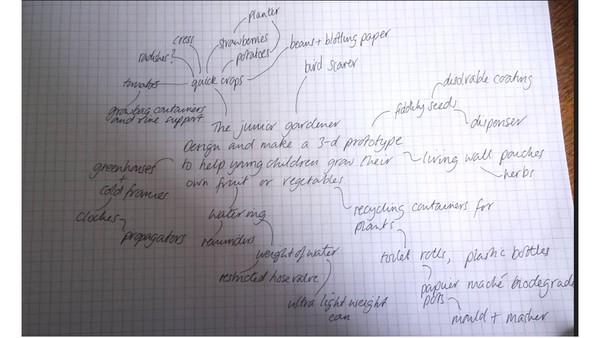 planter
cress
strawberries
beans + blotting paper
radishes?
potatoes
bird scarer
disolvable coating
tomatoes
quick crops
fiddly seeds
growbag containers
and vine support
dispenser
The junior gardener
Design and make a 3-d prototype
to help young children grow their
own fruit or vegetables
living wall pouches
herbs
greenhouses
cold frames
cloches
propagators
watering
reminders
weight of water
restricted hose valve
ultra light weight
can
recycling containers for
plants
toilet rolls, plastic bottles
papier maché biodegrada
pots
mould + masher